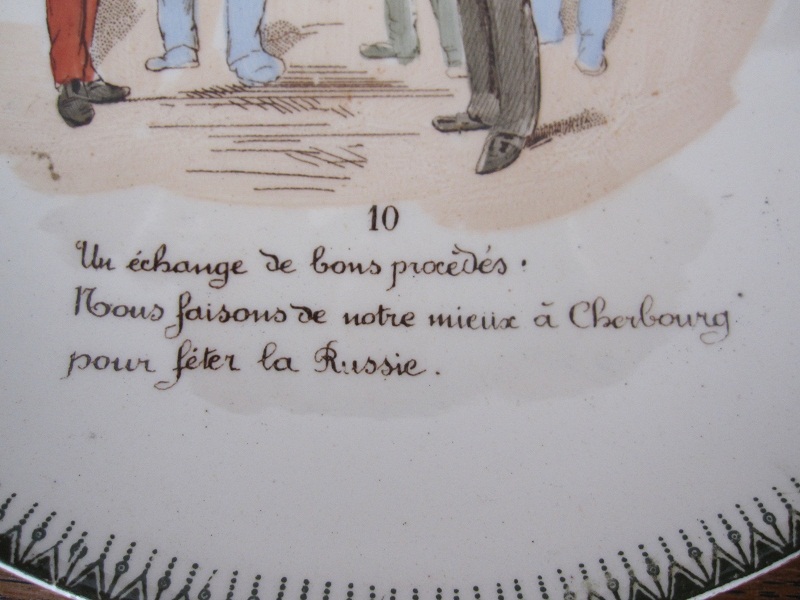 10
Un échange de bons procédés.
Nous faisons de notre mieux à Cherbourg
pour fêter la Russie.